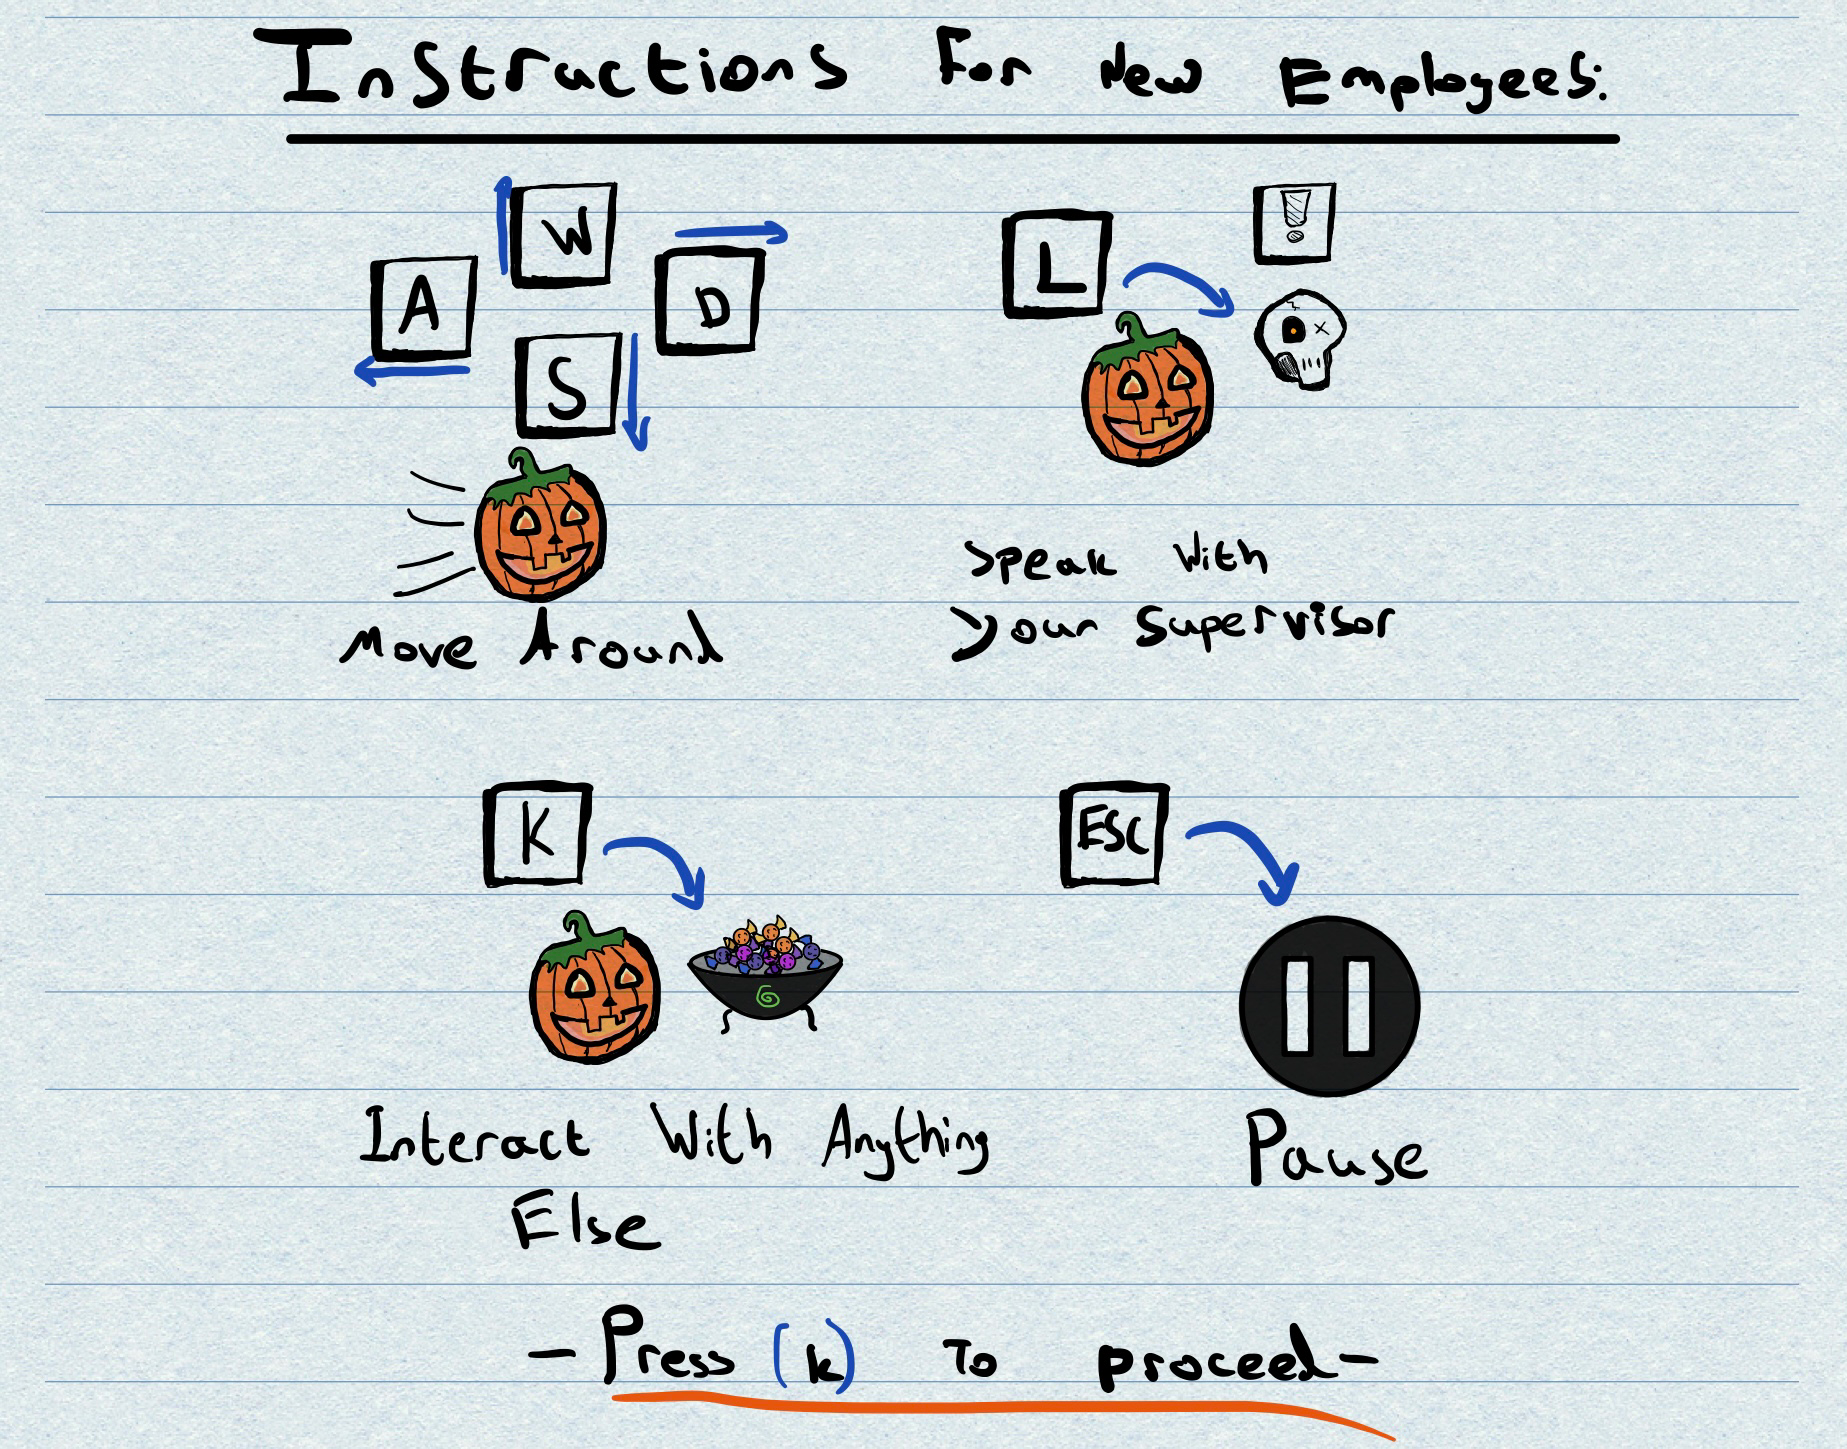 Instructions For New Employees:
W
A
D
S
Move Around
L
!
Speak With
Your Supervisor
K
Interact With Anything
Else
ESC
Pause
- Press (k) To proceed -